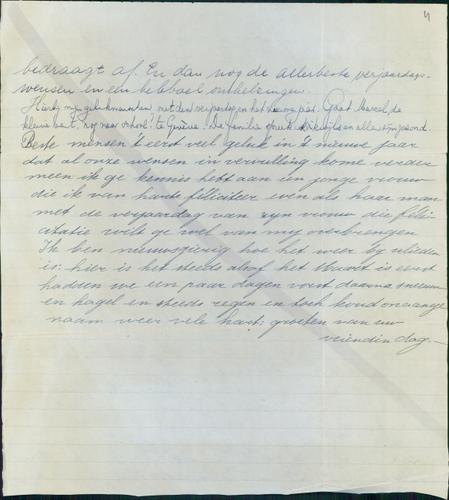 4
bedraagt af. En dan nog de allerbeste verjaardags-
wensen en een heleboel omhelzingen.
Hartelijke gelukwensen met den verjaardag en het nieuwe jaar. Gaat Marcel, de
kleine vent, nog naar school? te Genève. De familie
Beste mensen 't eerst veel geluk in 't nieuwe jaar
dat al onze wensen in vervulling kome verder
meen ik ge kennis hebt aan een jonge vrouw
die ik van harte feliciteer even als haar man
met de verjaardag van zijn vrouw die felici-
citatie wilt ge wel van my overbrengen
Ik ben nieuwsgierig hoe het weer by ulieden
is: hier is het steeds alsof het Maart is eerst
hadden we een paar dagen vorst daarna sneeuw
en hagel en steeds regen en toch koud onaange
naam weer vele harts groeten van uw
vriendin dag.-